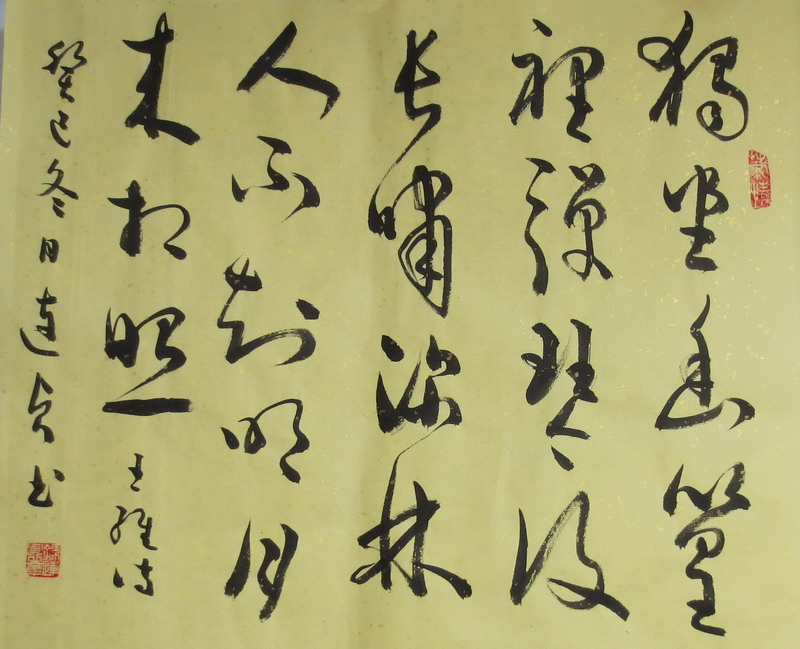 獨坐幽篁
裡彈琴復
長嘯深林
人不知明月
来相照 王維诗
癸巳冬月书